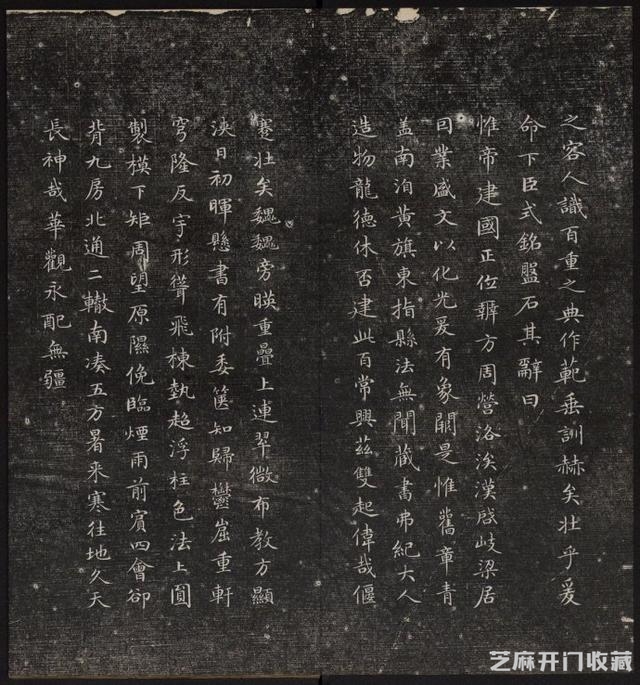 之容人識百重之典作範垂訓赫矣壯乎爰
命下臣式銘盤石其辭曰
惟帝建國正位辨方周營洛涘漢啓岐梁居
囙業盛文以化光爰有象闕是惟舊章青
盖南洎黄旗東指縣法無聞藏書弗紀大人
造物龍德休否建此百常興茲雙起偉哉偃
蹇壯矣巍巍旁暎重疊上連翠微布教方顯
浹日初暉懸書有附委篋知歸鬱崫重軒
穹隆反宇形聳飛棟埶超浮柱色法上圓
製模下矩周望原隰俛臨煙雨前賓四會卻
背九房北通二轍南湊五方暑来寒往地久天
長神哉華觀永配無疆
芝麻开门收藏